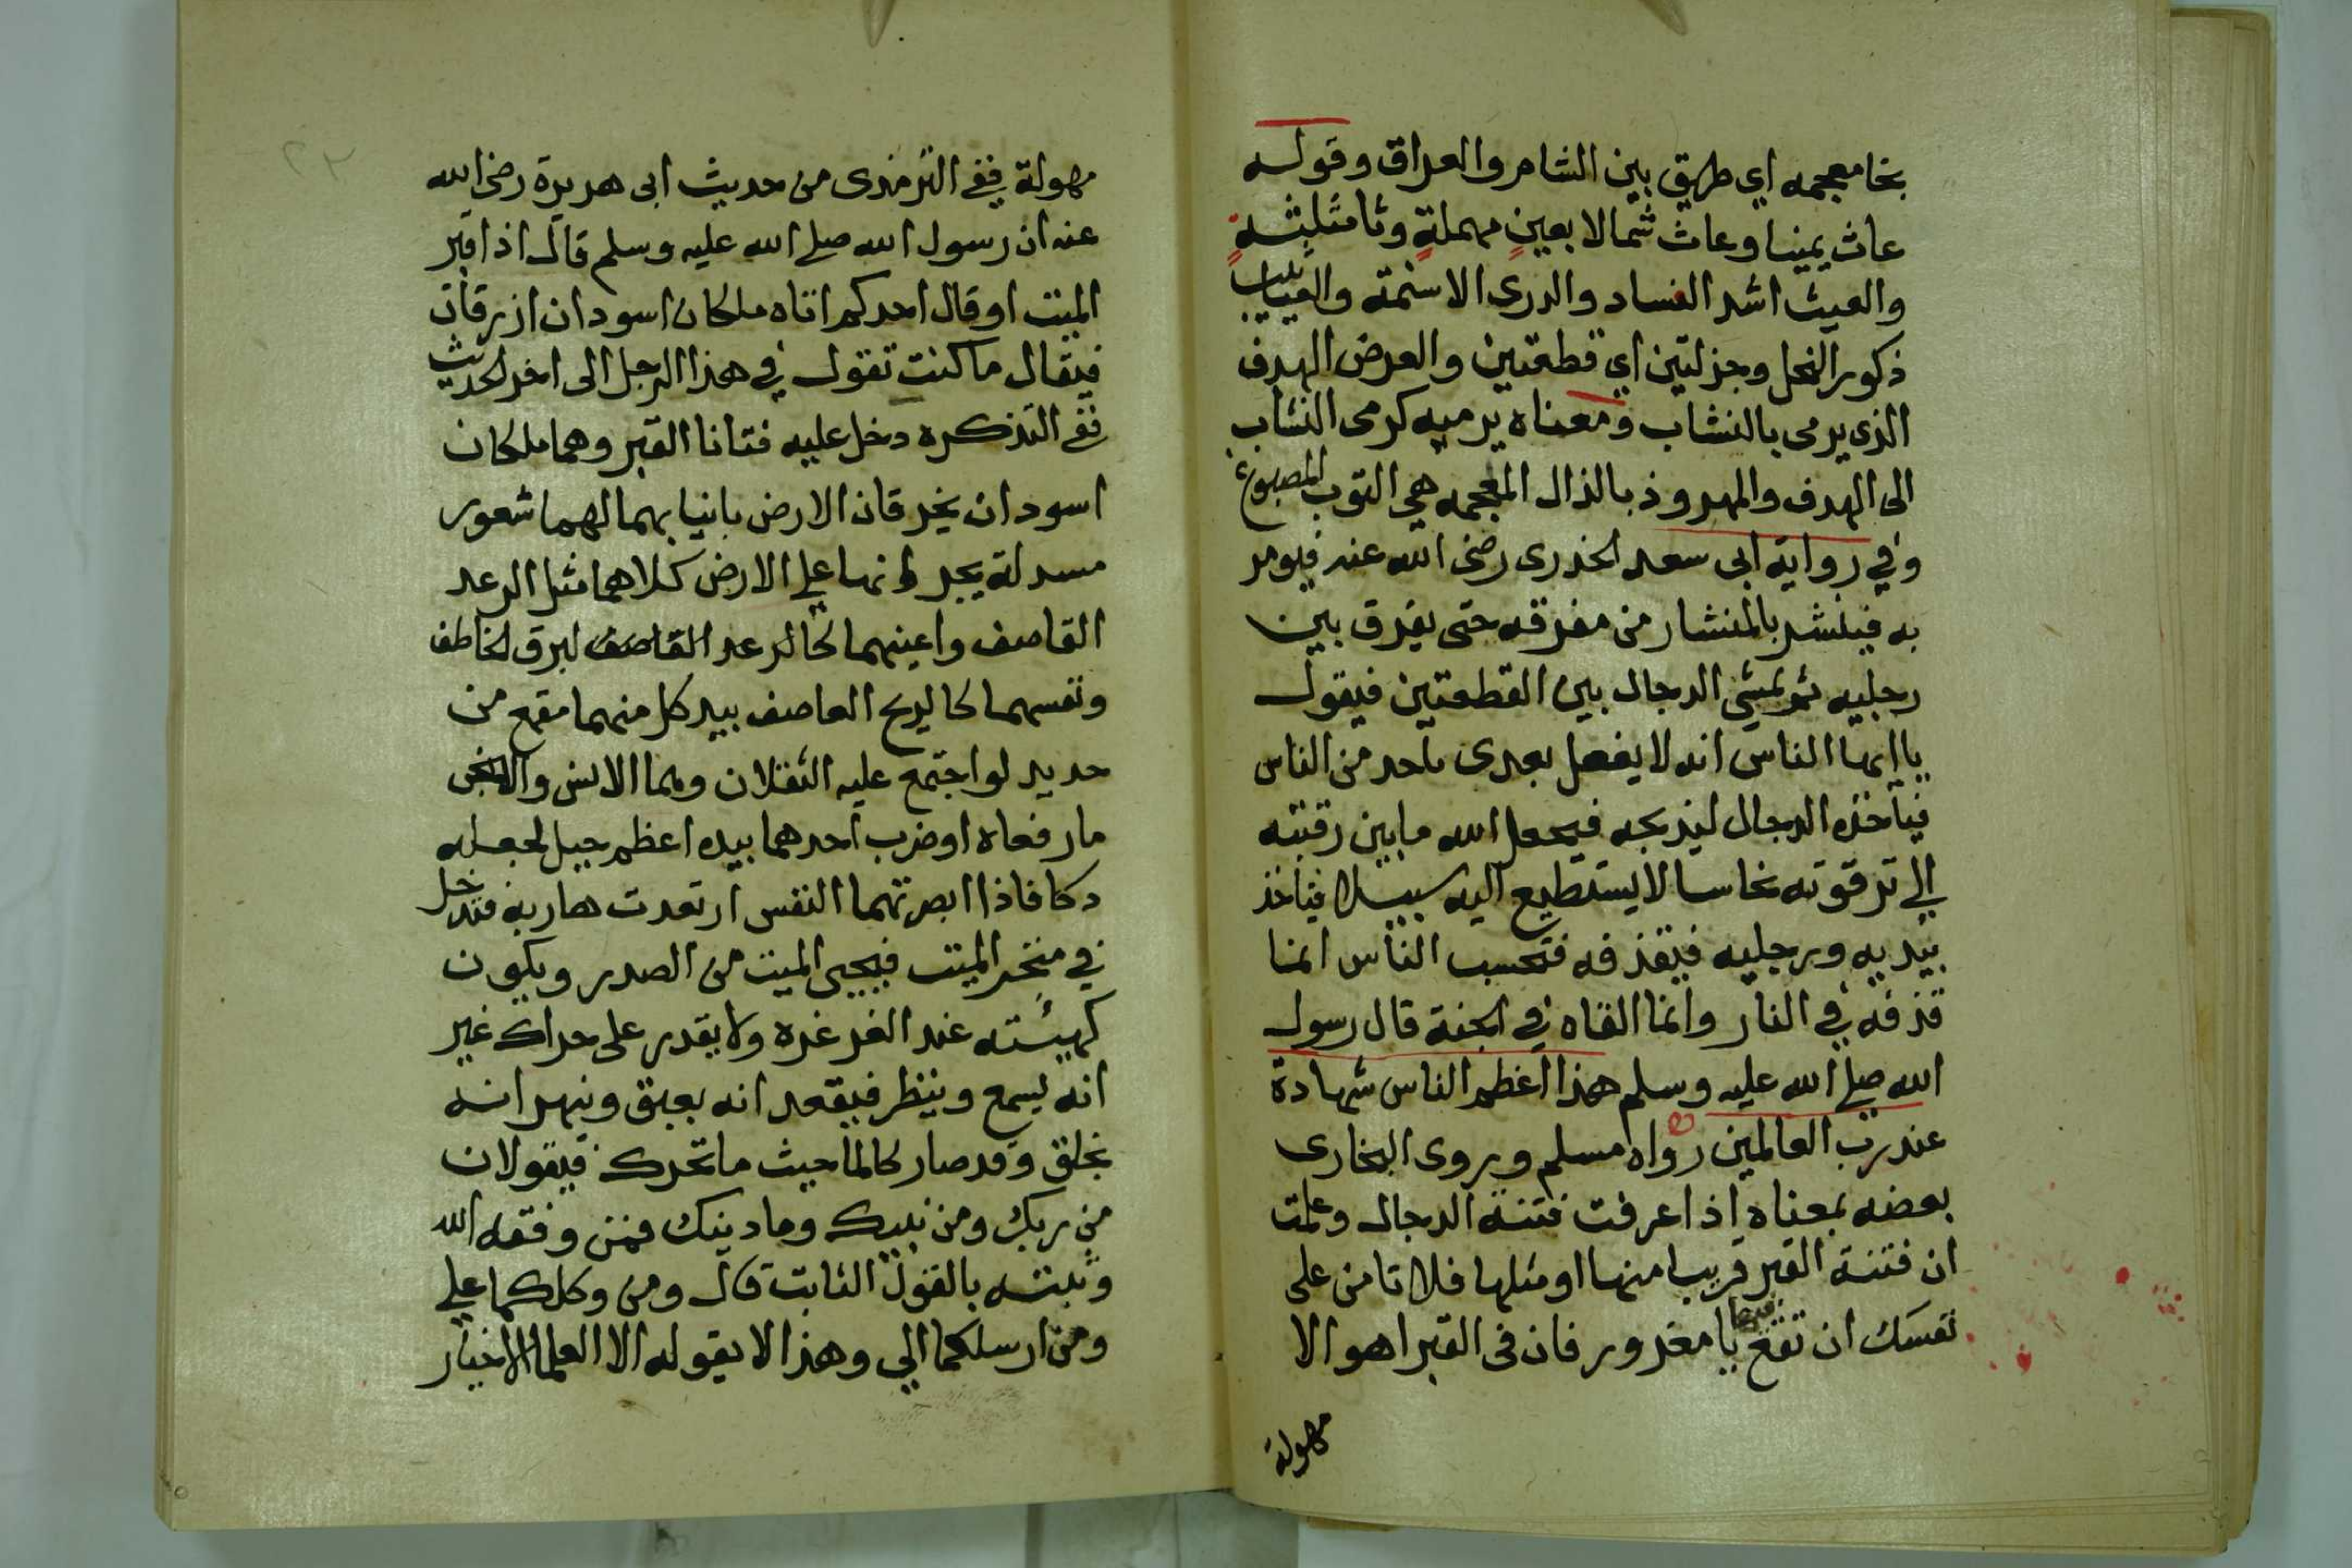 بخا معجمه اي طريق بين الشام والعراق وقوله
عاث يمينا وعاث شمالا بعين مهملة وثا مثلثة
والعيث اشد الفساد والذرى الاسنمة واليعاسيب
ذكور النحل وجزلتين اي قطعتين والعرض الهدف
الذي يرمى بالنشاب ومعناه يرميه كرمى النشاب
الى الهدف والمهروذ بالذال المعجمه هي الثوب المصبوغ
وفي رواية ابى سعد الخدرى رضى الله عنه فيومر
به فينشر بالمنشار من مفرقه حتى يفرق بين
رجليه ثم يمشي الدجال بين القطعتين فيقول
يا ايها الناس انه لا يفعل بعدى باحد من الناس
فيأخذه الدجال ليذبحه فيجعل الله ما بين رقبته
الي ترقوته نحاسا لا يستطيع اليه سبيلا فيأخذ
بيديه ورجليه فيقذفه فتحسب الناس انما
قذفه في النار وانما القاه في الجنة قال رسول
الله صلى الله عليه وسلم هذا اعظم الناس شهادة
عند رب العالمين رواه مسلم وروى البخارى
بعضه بمعناه اذا عرفت فتنة الدجال وعلمت
ان فتنة القبر قريب منها او مثلها فلا تامن على
نفسك ان تقع فيها يا مغرور فان فى القبر اهوالا
مهولة
مهولة ففى الترمذى من حديث ابى هريرة رضى الله
عنه ان رسول الله صلى الله عليه وسلم قال اذا قبر
الميت او قال احدكم اتاه ملكان اسودان ازرقان
فيقال ما كنت تقول في هذا الرجل الى اخر الحديث
ففى التذكره دخل عليه فتانا القبر وهما ملكان
اسودان يخرقان الارض بانيابهما لهما شعور
مسدلة يجرانها على الارض كلاهما مثل الرعد
القاصف واعينهما كالرعد القاصف لبرق الخاطف
ونفسهما كالريح العاصف بيد كل منهما مقمع من
حديد لو اجتمع عليه الثقلان وهما الانس والجن
ما رفعاه او ضرب احدهما بيده اعظم جبل لجعله
دكا فاذا ابصرتهما النفس ارتعدت هاربة فتدخل
في منخر الميت فيحيى الميت من الصدر ويكون
كهيئته عند الغرغره ولا يقدر على حراك غير
انه يسمع وينظر فيقعدانه بعنق وينهرانه
بخلق وقد صار كالما حيث ما تحرك فيقولان
من ربك ومن نبيك وما دينك فمن وفقه الله
وثبته بالقول الثابت قال ومن وكلكما على
ومن ارسلكما الي وهذا لا يقوله الا العلما الاخيار